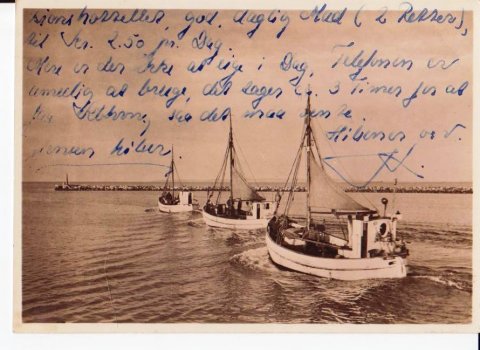 sionshotellet god, daglig Mad (2 Retter),
til Kr. 2.50 pr. Dag.
Mere er der ikke at sige i Dag, Telefonen er
umulig at bruge, det tager ca. 3 Timer for at
faa København, saa det maa vente.
Hilsener o.s.v.
hilser